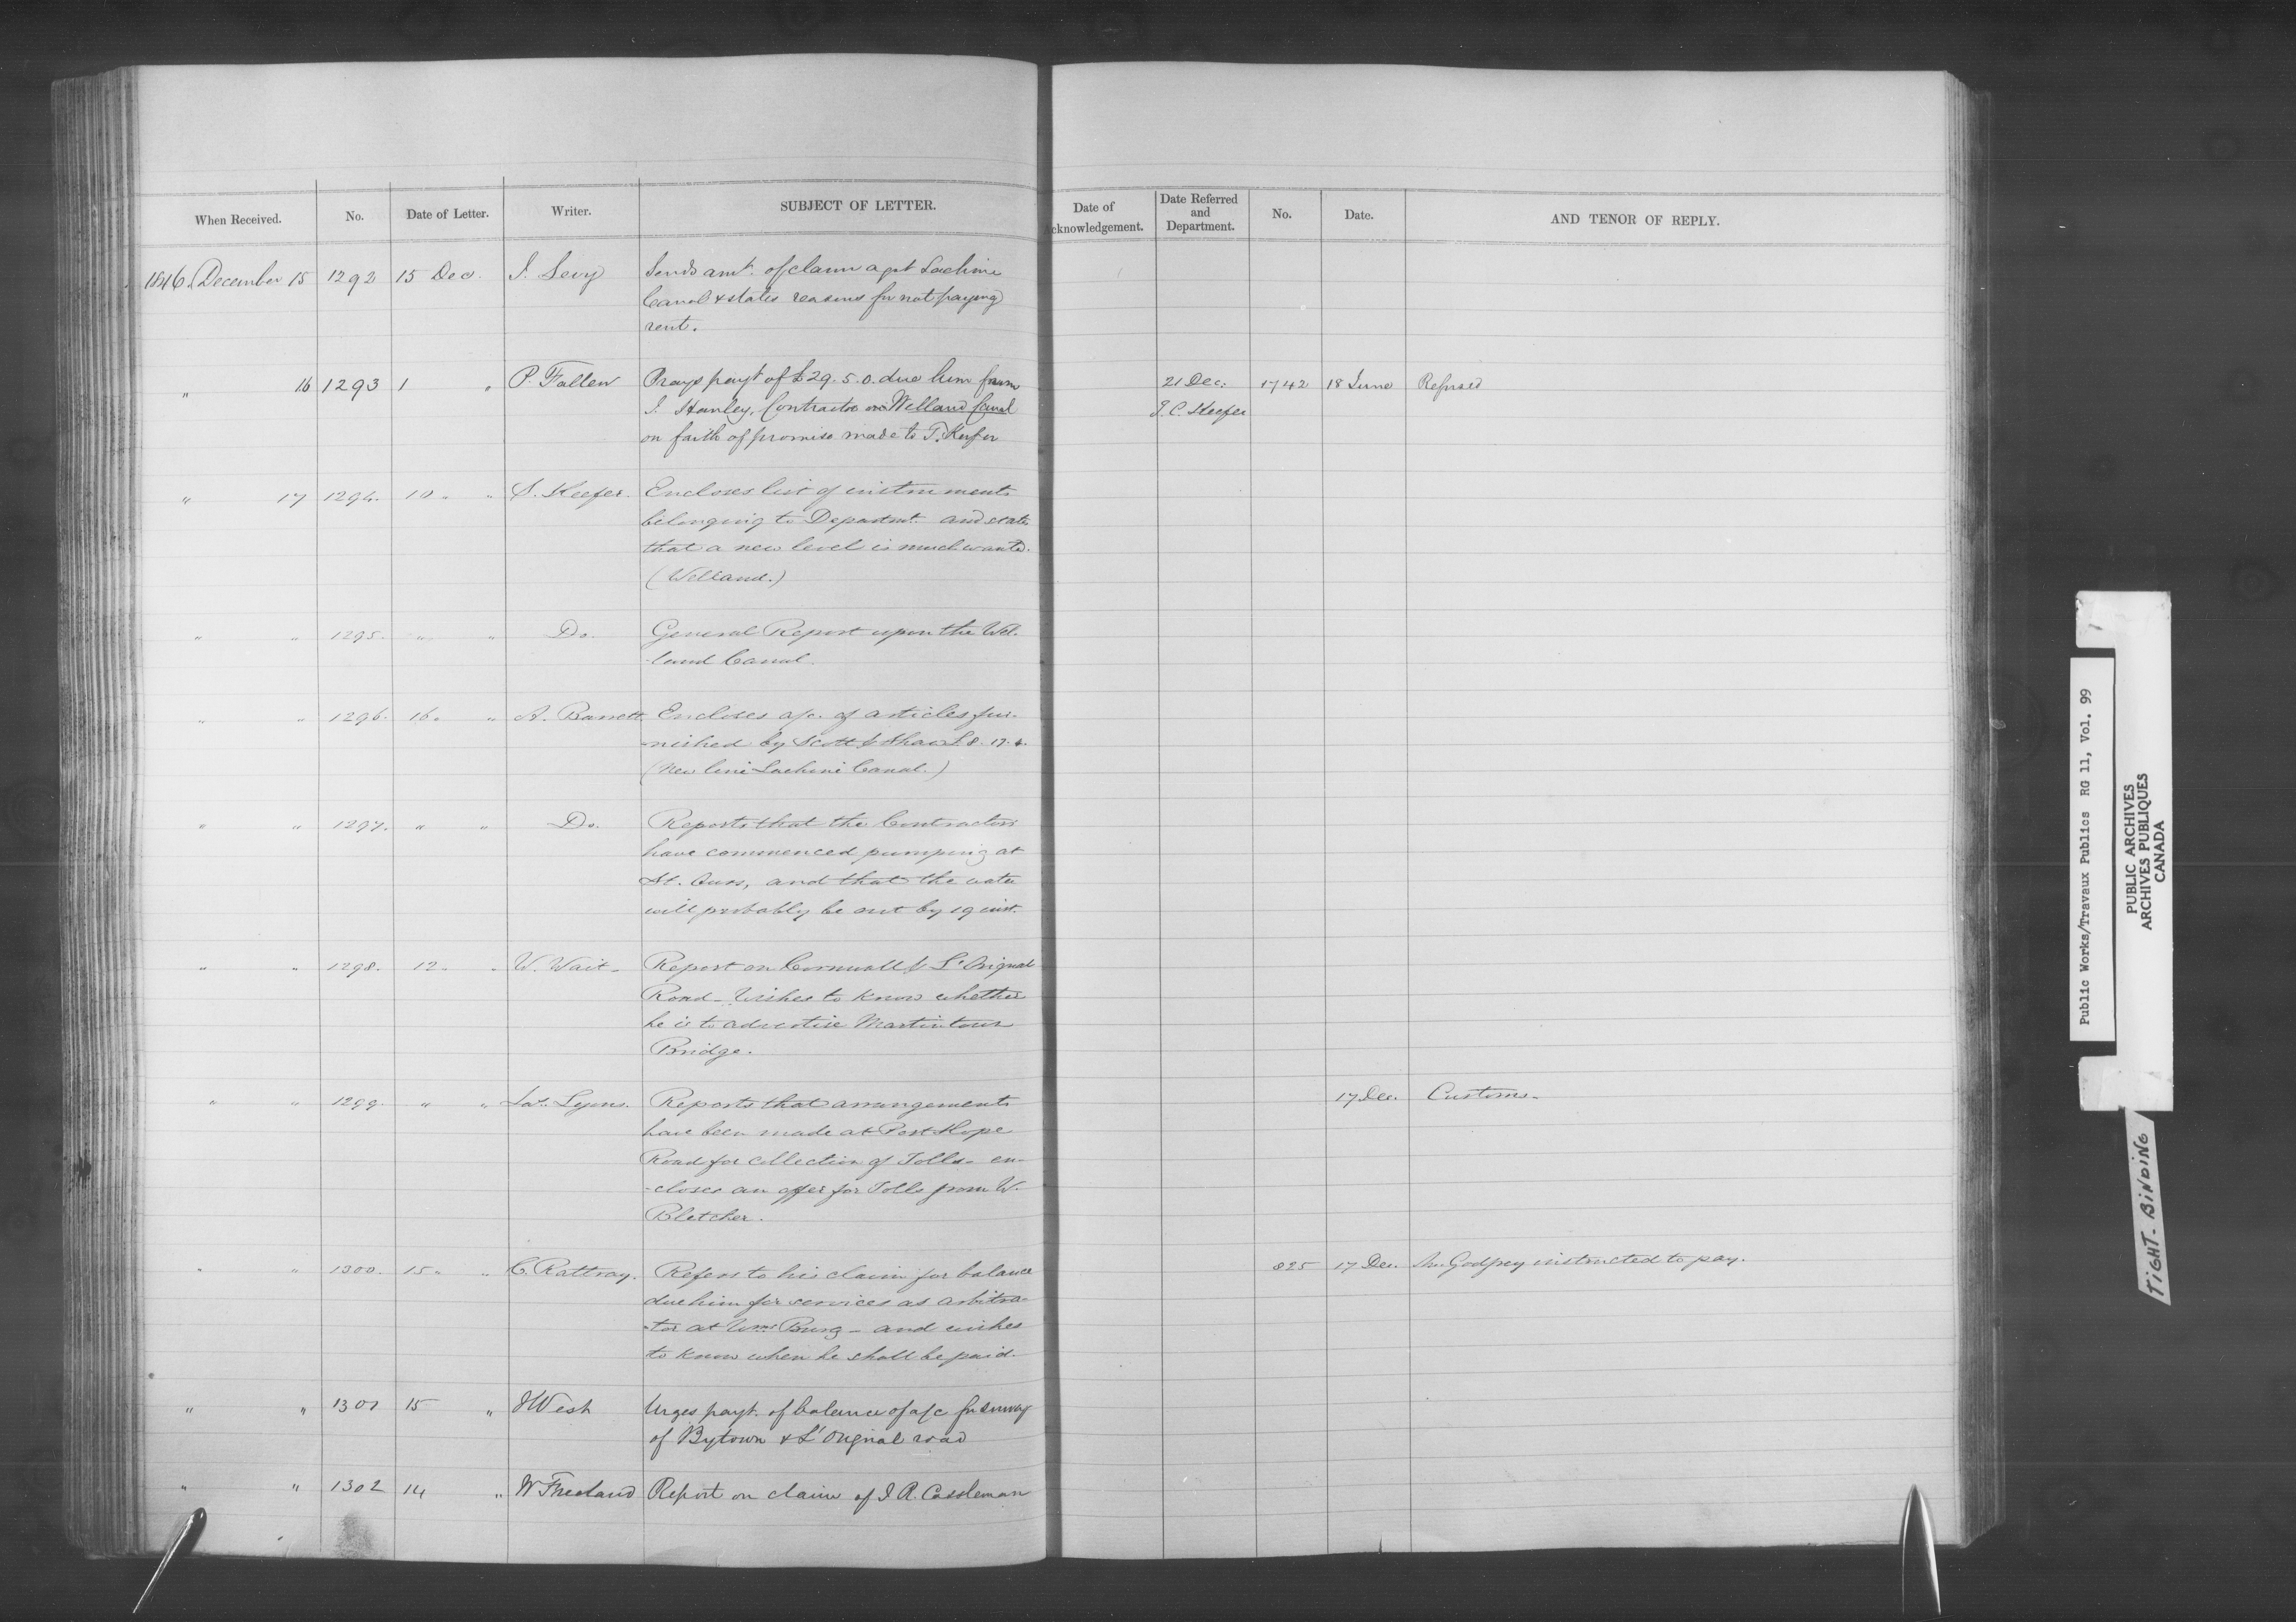 When Received. No. Date of Letter. Writer. SUBJECT OF LETTER. Date of Acknowledgement. Date Referred and Department. No. Date. AND TENOR OF REPLY.
1846. December 15 1292 15 Dec. J. Levy Sends amt. of claim agst Lachine
Canal & states reasons for not paying
rent.
" 16 1293 1 " P. Fallen Prays payt of £29.5.0. due him from 21 Dec: 1742 18 June Refused
J. Hanley, Contractor on Welland Canal T. C. Keefer
on faith of promise made to T. Keefer
" 17 1294. 10 " " S. Keefer. Encloses list of instruments
belonging to Departmt. and states
that a new level is much wanted.
(Welland.)
" " 1295. " " Do. General Report upon the Wel-
-land Canal.
" " 1296. 16. " A. Barrett Encloses a/c. of articles fur-
-nished by Scott & Shaw £8.17.6.
(New line Lachine Canal.)
" " 1297. " " Do. Reports that the Contractors
have commenced pumping at
St. Ours, and that the water
will probably be out by 19 inst.
" " 1298. 12. " W. Wait. Report on Cornwall & L'Orignal
Road - Wishes to know whether
he is to advertise Martintown
Bridge.
" " 1299. " " Jas. Lyons. Reports that arrangements 17 Dec. Customs.
have been made at Port Hope
Road for collection of Tolls - en-
-closes an offer for Tolls from W.
Bletcher.
" " 1300. 15 " " C. Rattray. Refers to his claim for balance 825 17 Dec. Mr. Godfrey instructed to pay.
due him for services as arbitra-
-tor at Wms Burg - and wishes
to know when he shall be paid.
" " 1301 15 " J West Urges payt. of balance of a/c for survey
of Bytown & L'Orignal road
" " 1302 14 " W Freeland Report on claim of J. R. Cassleman
Public Works/Travaux Publics RG 11, Vol. 99
PUBLIC ARCHIVES
ARCHIVES PUBLIQUES
CANADA
TIGHT. BINDING